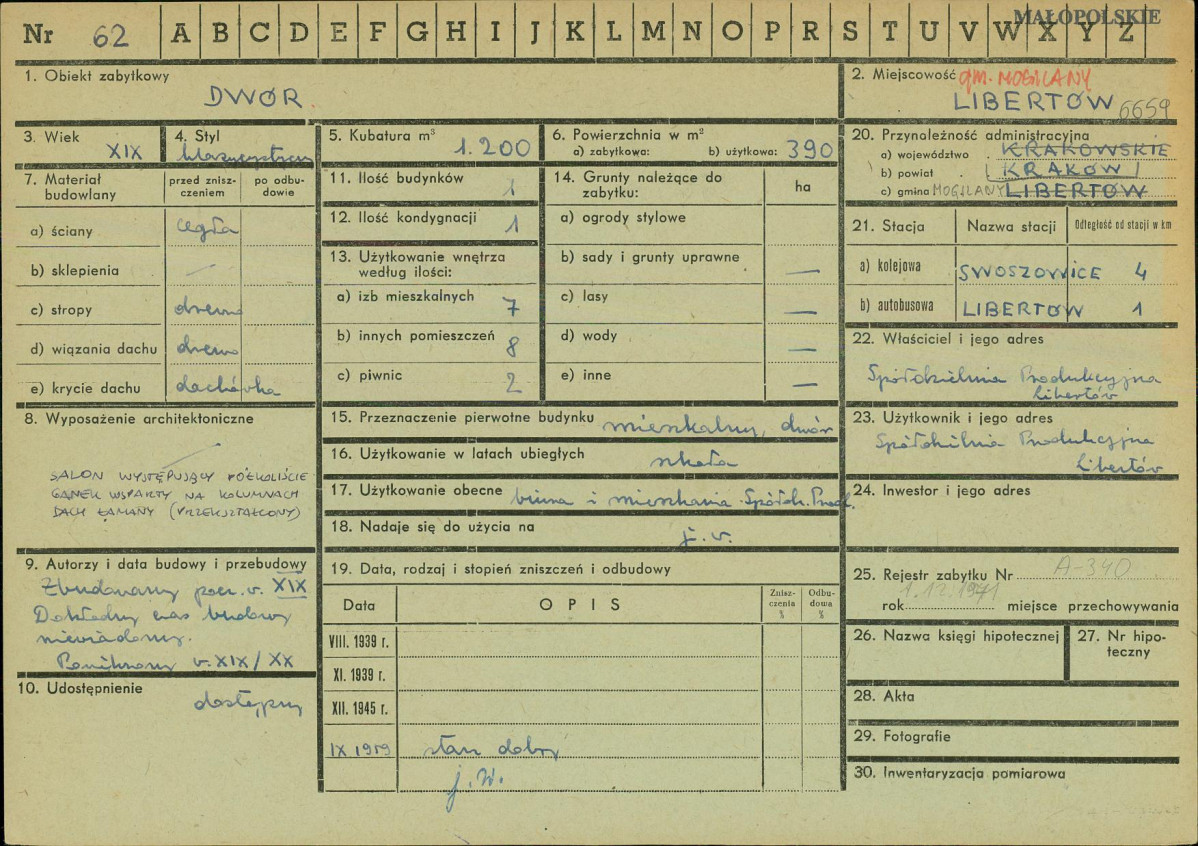 MAŁOPOLSKIE
Nr 62 A B C D E F G H I J K L M N O P R S T U V W X Y Z
1. Obiekt zabytkowy
DWÓR
2. Miejscowość gm. MOGILANY
LIBERTÓW 6659
3. Wiek
XIX
4. Styl
5. Kubatura m³ 1.200
6. Powierzchnia w m²
a) zabytkowa: b) użytkowa: 390
7. Materiał budowlany
przed zniszczeniem
po odbudowie
a) ściany cegła
b) sklepienia —
c) stropy drewno
d) wiązania dachu drewno
e) krycie dachu dachówka
8. Wyposażenie architektoniczne
—
SALON WYSTĘPUJĄCY PÓŁKOLIŚCIE
GANEK WSPARTY NA KOLUMNACH
DACH ŁAMANY (PRZEKSZTAŁCONY)
9. Autorzy i data budowy i przebudowy
Zbudowany pocz. w. XIX
Dokładny czas budowy
niewiadomy.
w. XIX/XX
10. Udostępnienie
dostępny
11. Ilość budynków 1
12. Ilość kondygnacji 1
13. Użytkowanie wnętrza
według ilości:
a) izb mieszkalnych 7
b) innych pomieszczeń 8
c) piwnic 2
14. Grunty należące do
zabytku:
ha
a) ogrody stylowe
b) sady i grunty uprawne —
c) lasy —
d) wody —
e) inne —
15. Przeznaczenie pierwotne budynku mieszkalny, dwór
16. Użytkowanie w latach ubiegłych szkoła
17. Użytkowanie obecne biura i mieszkania Spółdz. Prod.
18. Nadaje się do użycia na j. w.
19. Data, rodzaj i stopień zniszczeń i odbudowy
Data
OPIS
Zniszczenia %
Odbudowa %
VIII. 1939 r.
XI. 1939 r.
XII. 1945 r.
IX 1959 stan dobry
j. w.
20. Przynależność administracyjna
a) województwo KRAKOWSKIE
b) powiat KRAKÓW
c) gmina MOGILANY LIBERTÓW
21. Stacja
Nazwa stacji
Odległość od stacji w km
a) kolejowa SWOSZOWICE 4
b) autobusowa LIBERTÓW 1
22. Właściciel i jego adres
Spółdzielnia Produkcyjna
Libertów
23. Użytkownik i jego adres
Spółdzielnia Produkcyjna
Libertów
24. Inwestor i jego adres
25. Rejestr zabytku Nr A-340
rok 1.12.1971 miejsce przechowywania
26. Nazwa księgi hipotecznej
27. Nr hipoteczny
28. Akta
29. Fotografie
30. Inwentaryzacja pomiarowa